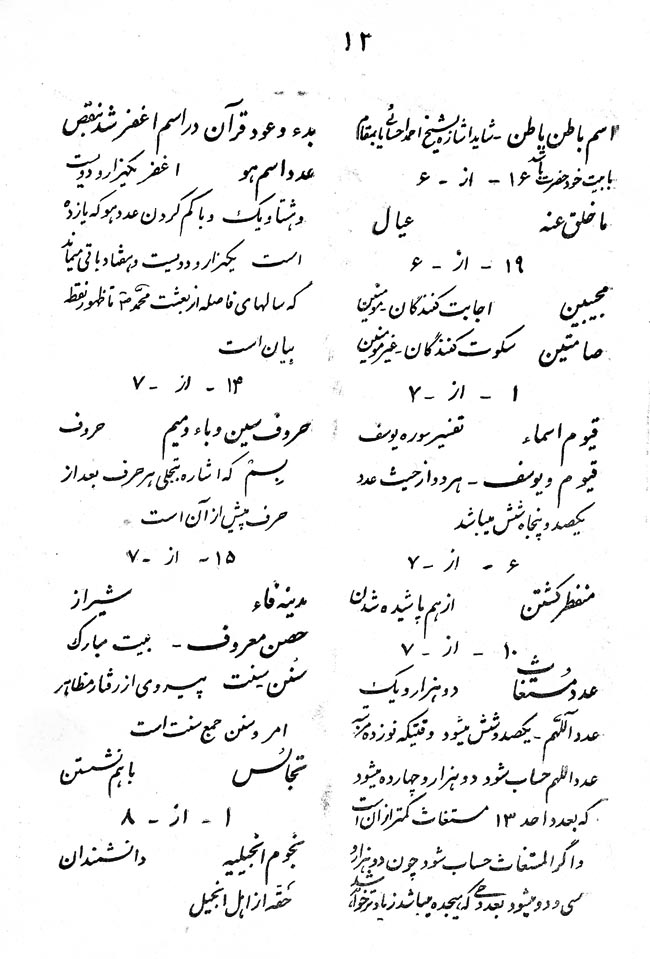 ۱۲
اسم باطن باطن - شاید اشاره بشیخ احمد احسائی یا بمقام
بابیت خود حضرت باشد
۱۶ - از - ۶
ما خلق عنه عیال
۱۹ - از - ۶
مجیبین اجابت کنندگان - مومنین
صامتین سکوت کنندگان - غیر مومنین
۱ - از - ۷
قیوم اسماء تفسیر سوره یوسف
قیوم و یوسف - هر دو از حیث عدد
یکصد و پنجاه شش میباشد
۶ - از - ۷
منفطر گشتن از هم پاشیده شدن
۱۰ - از - ۷
عدد مستغاث دو هزار و یک
عدد اللهم - یکصد و شش میشود وقتیکه نوزده مرتبه
عدد اللهم حساب شود دو هزار و چهارده میشود
که بعدد احد ۱۳ مستغاث کمتر از آن است
و اگر المستغاث حساب شود چون دو هزار و
سی و دو میشود بعدد حی که هیجده میباشد زیادتر خواهد شد
بدء و عود قرآن در اسم اغفر شد بنقص
عدد اسم هو اغفر یکهزار و دویست
و هشتاو یک و با کم کردن عدد هو که یازده
است یکهزار و دویست و هفتاد باقی میماند
که سالهای فاصله از بعثت محمد ص تا ظهور نقطه
بیان است
۱۴ - از - ۷
حروف سین و باء و میم حروف
بسم که اشاره بتجلی هر حرف بعد از
حرف پیش از آن است
۱۵ - از - ۷
مدینه فاء شیراز
حصن معروف - بیت مبارک
سنن سینت پیروی از رفتار مظاهر
امر و سنن جمع سنت است
تجالس باهم نشستن
۱ - از - ۸
نجوم انجیلیه دانشندان
حقه از اهل انجیل